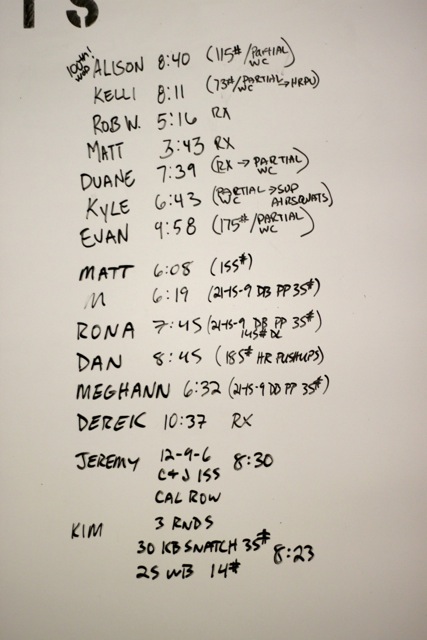 TS
100th! WOD ALISON 8:40 (115#/PARTIAL WC)
KELLI 8:11 (73#/PARTIAL WC → HRPU)
ROB W. 5:16 RX
MATT 3:43 RX
DUANE 7:39 (RX → PARTIAL WC)
KYLE 6:43 (PARTIAL WC → SUP AIRSQUATS)
EVAN 9:58 (175#/PARTIAL WC)
MATT 6:08 (155#)
M 6:19 (21-15-9 DB PP 35#)
RONA 7:45 (21-15-9 DB PP 35# 145# DL)
DAN 8:45 (185# HR PUSHUPS)
MEGHANN 6:32 (21-15-9 DD PP 35#)
DEREK 10:37 RX
JEREMY 12-9-6 8:30
C+J 155
CAL ROW
KIM 3 RNDS
30 KB SNATCH 35# 8:23
25 WB 14#